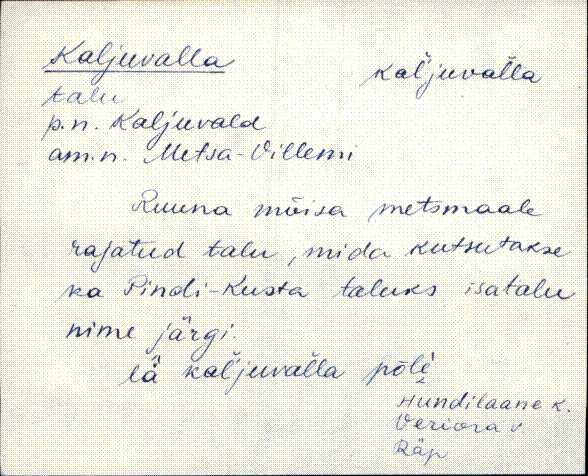 Kaljuvalla kal̆juval̆la
talu
p.n. Kaljuvald
am.n. Metsa-Villemi
Ruuna mõisa metsmaale
rajatud talu, mida kutsutakse
ka Pindi-Kusta taluks isatalu
nime järgi.
lä̆ kal̆juval̆la põlĕ
Hundilaane k.
Veriora v.
Räp